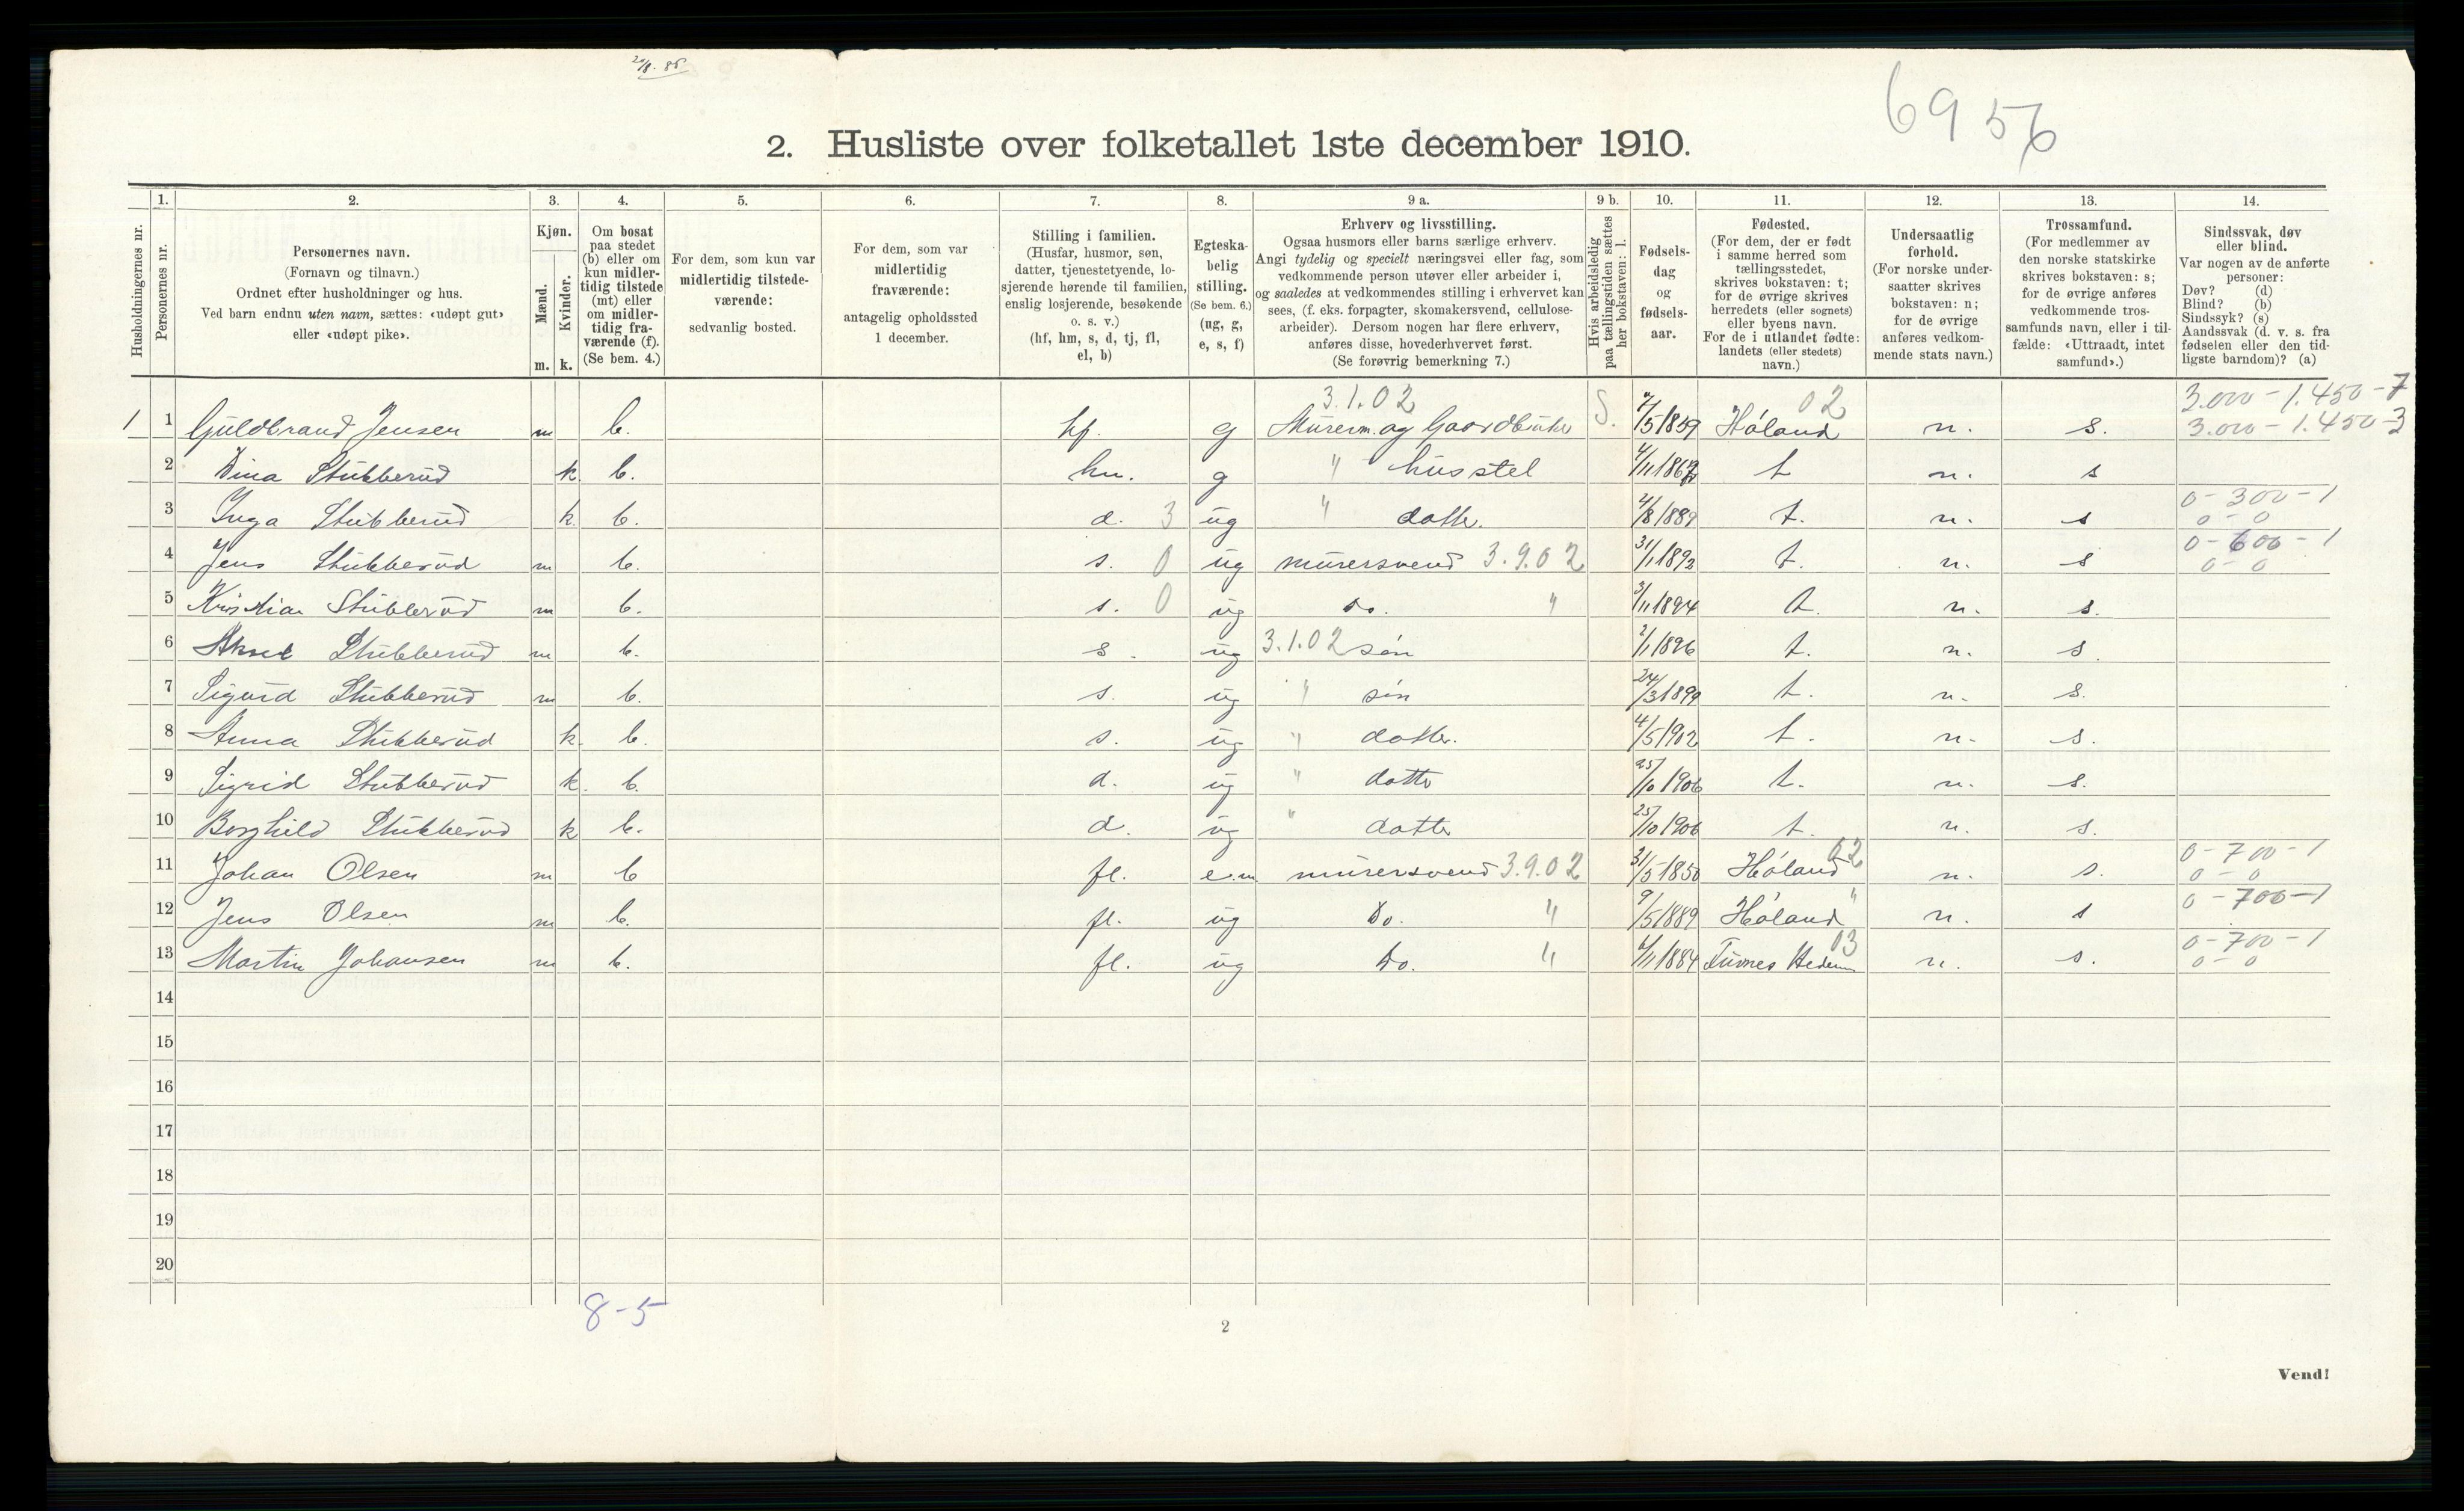 2/8. 85
6956
2. Husliste over folketallet 1ste december 1910.
Husholdningernes nr.
1. Personernes nr.
2. Personernes navn.
(Fornavn og tilnavn.)
Ordnet efter husholdninger og hus.
Ved barn endnu uten navn, sættes: «udøpt gut»
eller «udøpt pike».
3. Kjøn.
Mænd. m.
Kvinder. k.
4. Om bosat
paa stedet
(b) eller om
kun midler-
tidig tilstede
(mt) eller
om midler-
tidig fra-
værende (f).
(Se bem. 4.)
5. For dem, som kun var
midlertidig tilstede-
værende:
sedvanlig bosted.
6. For dem, som var
midlertidig
fraværende:
antagelig opholdssted
1 december.
7. Stilling i familien.
(Husfar, husmor, søn,
datter, tjenestetyende, lo-
sjerende hørende til familien,
enslig losjerende, besøkende
o. s. v.)
(hf, hm, s, d, tj, fl,
el, b)
8. Egteska-
belig
stilling.
(Se bem. 6.)
(ug, g,
e, s, f)
9 a. Erhverv og livsstilling.
Ogsaa husmors eller barns særlige erhverv.
Angi tydelig og specielt næringsvei eller fag, som
vedkommende person utøver eller arbeider i,
og saaledes at vedkommendes stilling i erhvervet kan
sees, (f. eks. forpagter, skomakersvend, cellulose-
arbeider). Dersom nogen har flere erhverv,
anføres disse, hovederhvervet først.
(Se forøvrig bemerkning 7.)
9 b. Hvis arbeidsledig
paa tællingstiden sættes
her bokstaven: l.
10. Fødsels-
dag
og
fødsels-
aar.
11. Fødested.
(For dem, der er født
i samme herred som
tællingsstedet,
skrives bokstaven: t;
for de øvrige skrives
herredets (eller sognets)
eller byens navn.
For de i utlandet fødte:
landets (eller stedets)
navn.)
12. Undersaatlig
forhold.
(For norske under-
saatter skrives
bokstaven: n;
for de øvrige
anføres vedkom-
mende stats navn.)
13. Trossamfund.
(For medlemmer av
den norske statskirke
skrives bokstaven: s;
for de øvrige anføres
vedkommende tros-
samfunds navn, eller i til-
fælde: «Uttraadt, intet
samfund».)
14. Sindssvak, døv
eller blind.
Var nogen av de anførte
personer:
Døv? (d)
Blind? (b)
Sindssyk? (s)
Aandssvak (d. v. s. fra
fødselen eller den tid-
ligste barndom)? (a)
3.1.02 02 3.000-1.450-7
1 1 Guldbrand Jensen m b. hf. g Murerm. og Gaardbruker S. 7/5 1859 Høland n. s. 3.000-1.450-3
2 Dina Stubberud k. b. hm. g " husstel 4/11 1867 t n. s
0-300-1
3 Inga Stubberud k. b. d. 3 ug " datter. 4/8 1889 t. n. s 0-0
0-600-1
4 Jens Stubberud m b. s. 0 ug murersvend 3.9.02 31/1 1892 t. n. s 0-0
5 Kristian Stubberud m b. s. 0 ug Do. " 3/11 1894 t. n. s.
6 Aksel Stubberud m b. s. ug 3.1.02 søn 2/1 1896 t. n. s.
7 Sigurd Stubberud m b. s. ug " søn 24/3 1899 t. n. s.
8 Anna Stubberud k. b. s. ug " datter. 4/5 1902 t. n. s.
9 Sigrid Stubberud k. b. d. ug " datter 25/10 1906 t. n. s.
10 Borghild Stubberud k b. d. ug " datter 25/10 1906 t. n. s.
02 0-700-1
11 Johan Olsen m b fl. e.m. murersvend 3.9.02 31/5 1850 Høland n. s. 0-0
12 Jens Olsen m b. fl. ug Do. " 9/5 1889 Høland " n. s 0-700-1
03 0-700-1
13 Martin Johansen m b. fl. ug Do. " 6/11 1884 n. s. 0-0
14
15
16
17
18
19
20
8-5
2
Vend!